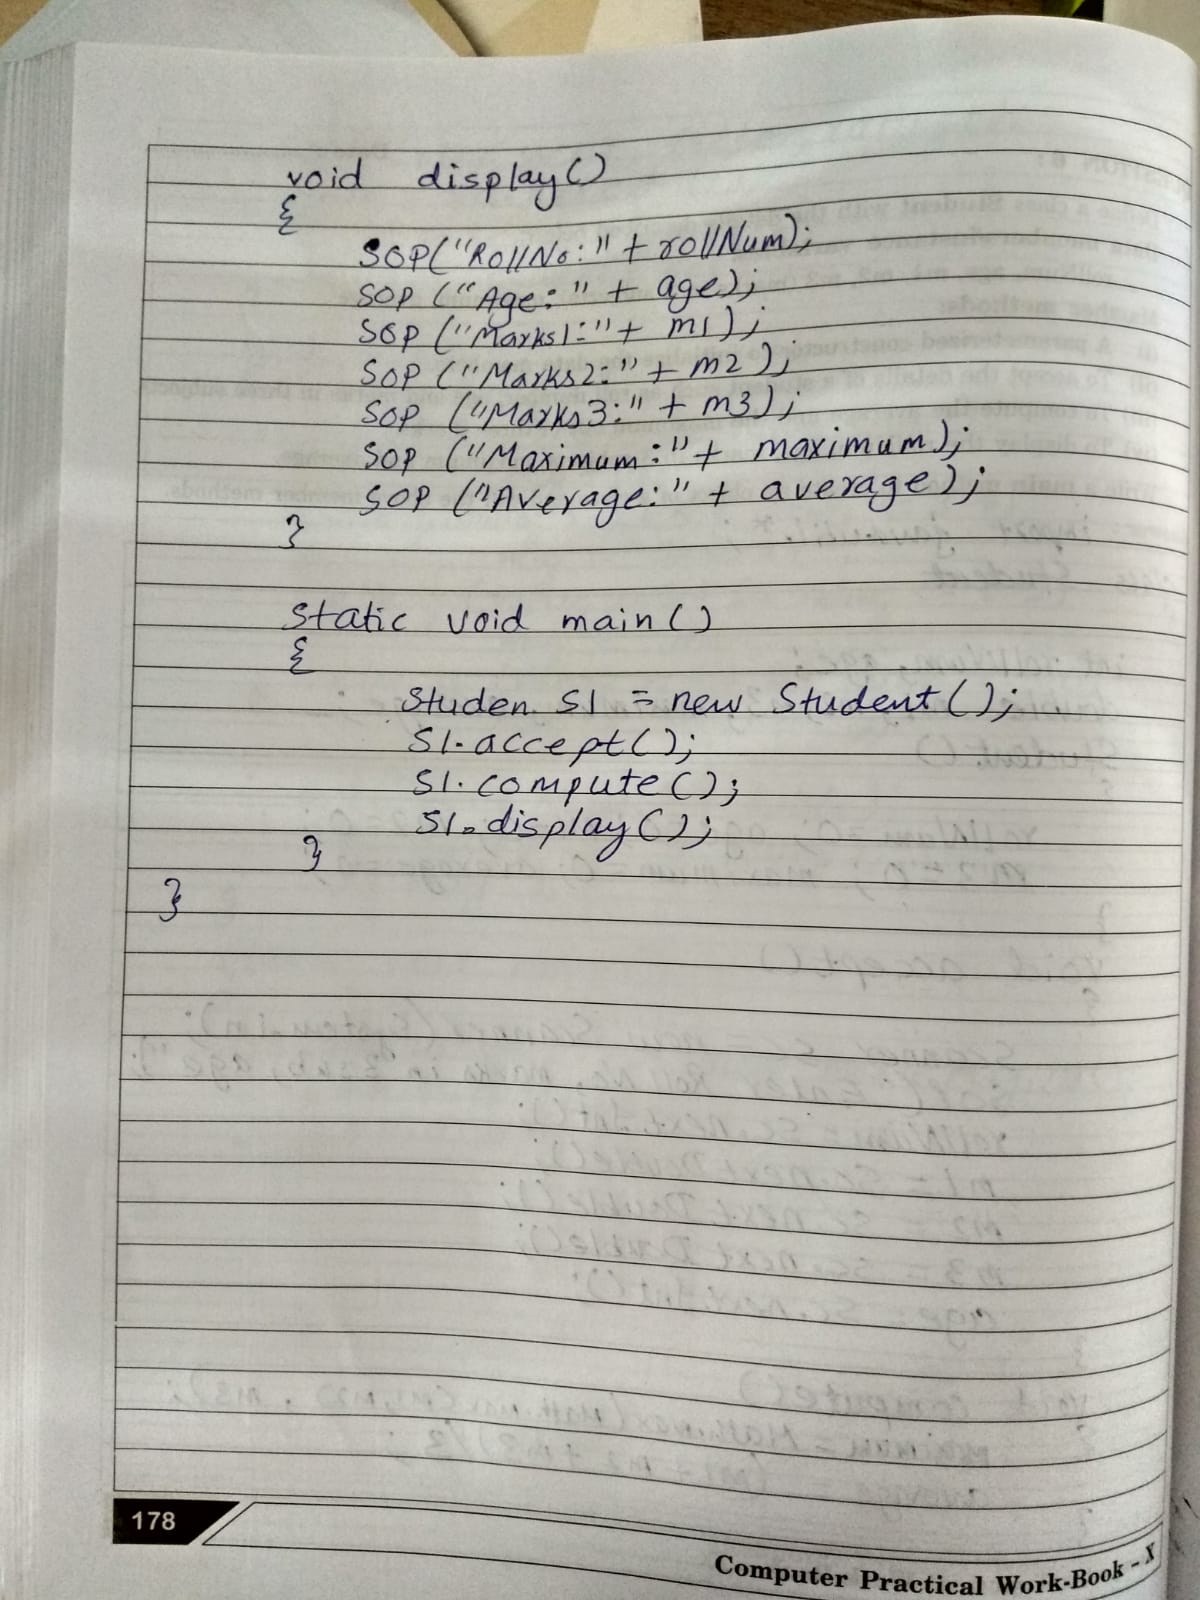 void display()
{
SOP("RollNo:" + rollNum);
SOP ("Age:" + age);
SOP ("Marks1:" + m1);
SOP ("Marks2:" + m2);
SOP ("Marks3:" + m3);
SOP ("Maximum:" + maximum);
SOP ("Average:" + average);
}
static void main()
{
Studen S1 = new Student();
S1.accept();
S1.compute();
S1.display();
}
}
178
Computer Practical Work-Book - X